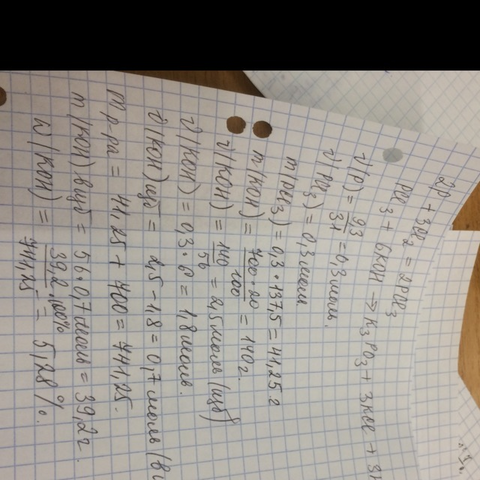 2P + 3Cl₂ = 2PCl₃
PCl₃ + 6KOH → K₃PO₃ + 3KCl + 3H
ν(P) = 9,3/31 = 0,3 моль.
ν(PCl₃) = 0,3 моль
m(PCl₃) = 0,3 · 137,5 = 41,25 г
m(KOH) = 700·20/100 = 140 г.
ν(KOH) = 140/56 = 2,5 моль (изб)
ν(KOH) = 0,3 · 6 = 1,8 моль.
ν(KOH) изб = 2,5 - 1,8 = 0,7 моль (в
m р-ра = 41,25 + 700 = 741,25.
m(KOH) в изб = 56·0,7 моль = 39,2 г.
ω(KOH) = 39,2·100%/741,25 = 5,28%.